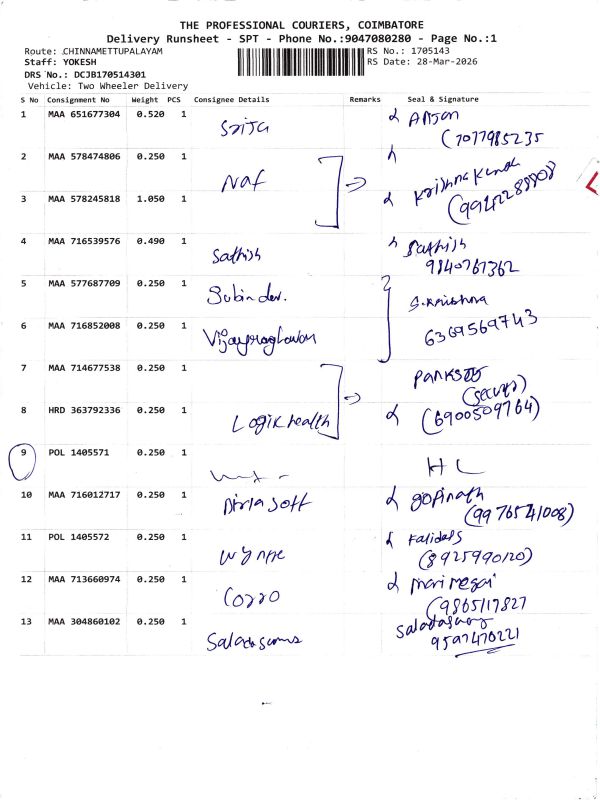 THE PROFESSIONAL COURIERS, COIMBATORE
Delivery Runsheet - SPT - Phone No.:9047080280 - Page No.:1
Route: CHINNAMETTUPALAYAM RS No.: 1705143
Staff: YOKESH RS Date: 28-Mar-2026
DRS No.: DCJB170514301
Vehicle: Two Wheeler Delivery
S No Consignment No Weight PCS Consignee Details Remarks Seal & Signature
1 MAA 651677304 0.520 1 Anjan
(7077985235
2 MAA 578474806 0.250 1
Naf
3 MAA 578245818 1.050 1
4 MAA 716539576 0.490 1 Sathish Sathish
9840767362
5 MAA 577687709 0.250 1 Subin dev. G.Krishna
6 MAA 716852008 0.250 1 Vijayraghavan 6369569743
7 MAA 714677538 0.250 1
8 HRD 363792336 0.250 1 Logix health (6900509764)
9 POL 1405571 0.250 1
10 MAA 716012717 0.250 1 Birlasoft gopinath
(9976541008)
11 POL 1405572 0.250 1
(8925990120)
12 MAA 713660974 0.250 1
(9865117827
13 MAA 304860102 0.250 1
9597470221